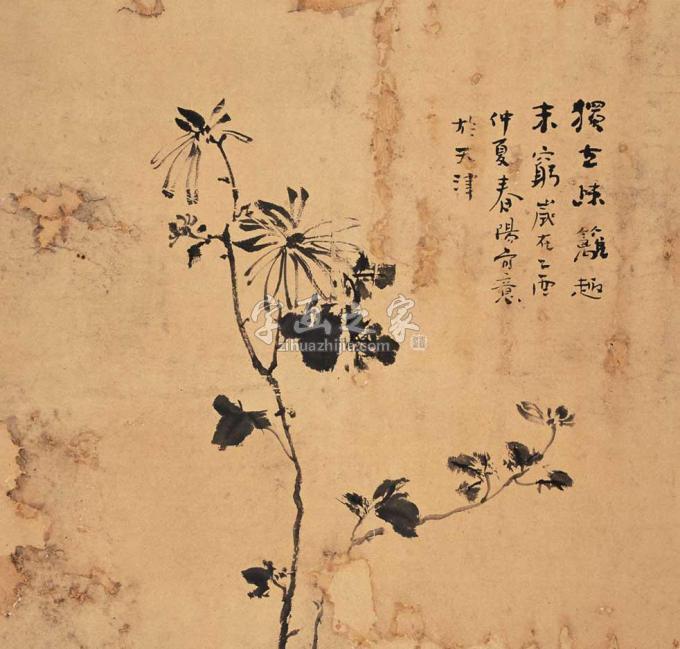 獨立疎籬趣
未窮歲在乙酉
仲夏春陽寫意
於天津
字画之家
zihuazhijia.com